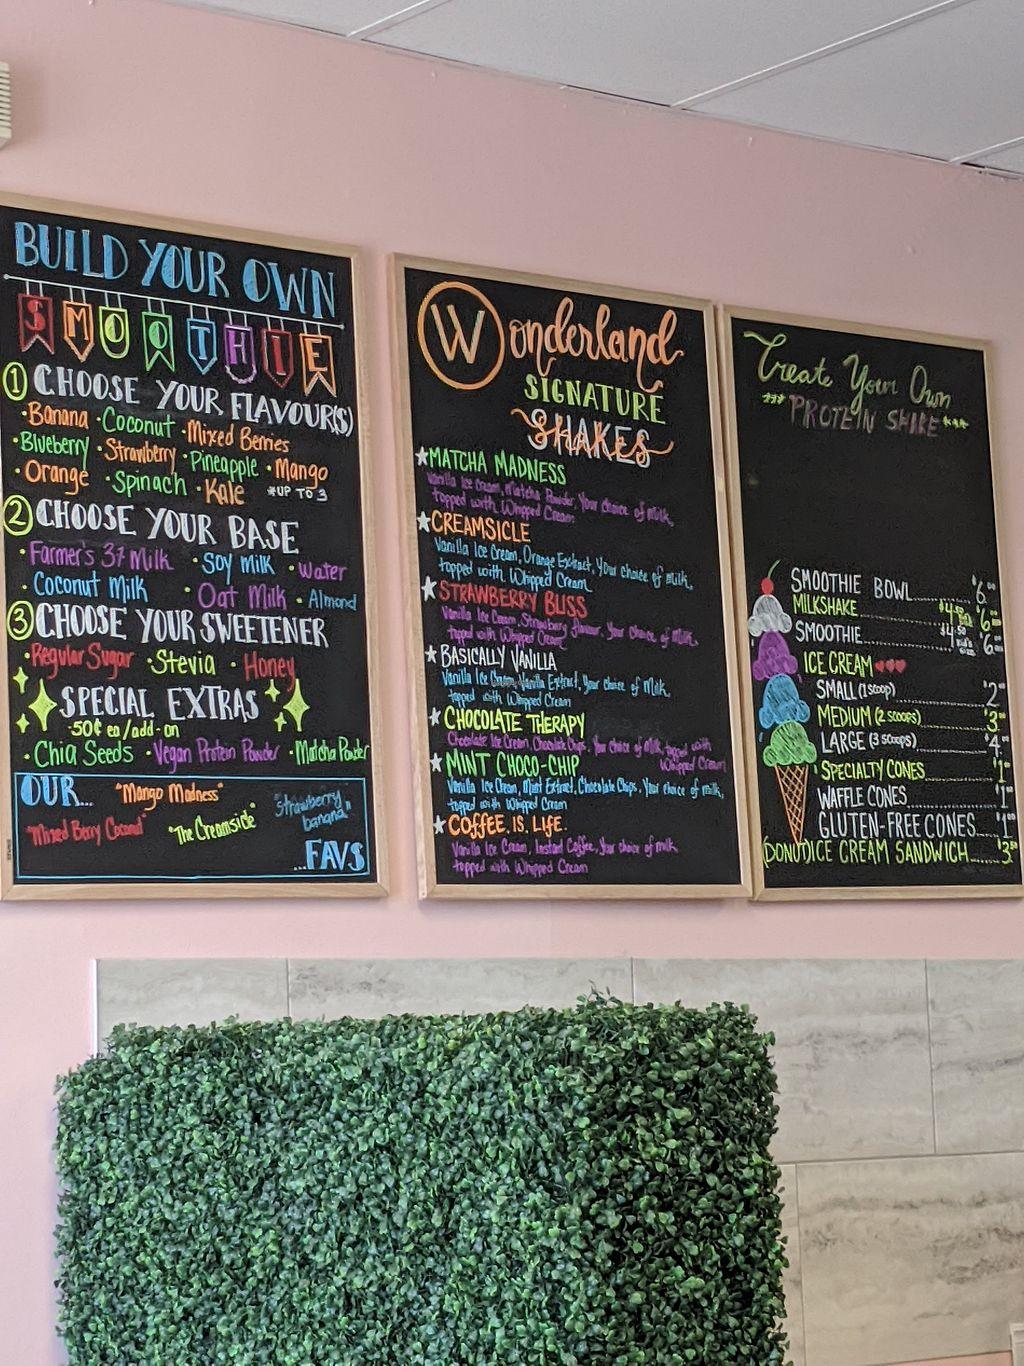 BUILD YOUR OWN
SMOOTHIE
1 CHOOSE YOUR FLAVOUR(S)
• Banana • Coconut • Mixed Berries
• Blueberry • Strawberry • Pineapple • Mango
• Orange • Spinach • Kale *UP TO 3
2 CHOOSE YOUR BASE
• Farmer's 37 Milk • Soy Milk • Water
• Coconut Milk • Oat Milk • Almond
3 CHOOSE YOUR SWEETENER
• Regular Sugar • Stevia • Honey
SPECIAL EXTRAS
50¢ ea/add-on
• Chia Seeds • Vegan Protein Powder • Matcha Powder
OUR...
"Mango Madness"
"Strawberry banana"
"Mixed Berry Coconut"
"The Creamside"
...FAVS
Wonderland
SIGNATURE
SHAKES
MATCHA MADNESS
Vanilla Ice Cream, Matcha Powder, Your choice of milk,
topped with Whipped Cream
CREAMSICLE
Vanilla Ice Cream, Orange Extract, Your choice of milk,
topped with Whipped Cream
STRAWBERRY BLISS
Vanilla Ice Cream, Strawberry flavour, Your choice of Milk,
topped with Whipped Cream
BASICALLY VANILLA
Vanilla Ice Cream, Vanilla Extract, Your choice of Milk,
topped with Whipped Cream
CHOCOLATE THERAPY
Chocolate Ice Cream, Chocolate Chips, Your choice of Milk, topped with
Whipped Cream
MINT CHOCO-CHIP
Vanilla Ice Cream, Mint Extract, Chocolate Chips, Your choice of milk,
topped with Whipped Cream
COFFEE IS LIFE
Vanilla Ice Cream, Instant Coffee, Your choice of milk
topped with Whipped Cream
Create Your Own
*** PROTEIN SHAKE ***
SMOOTHIE BOWL......$6.00
MILKSHAKE......$4.50 $6
SMOOTHIE......$4.50 $6
ICE CREAM
SMALL (1 SCOOP) $2
MEDIUM (2 SCOOPS) $3
LARGE (3 SCOOPS) $4
SPECIALTY CONES $1
WAFFLE CONES $1
GLUTEN-FREE CONES $1
(DONUT) ICE CREAM SANDWICH $3.50